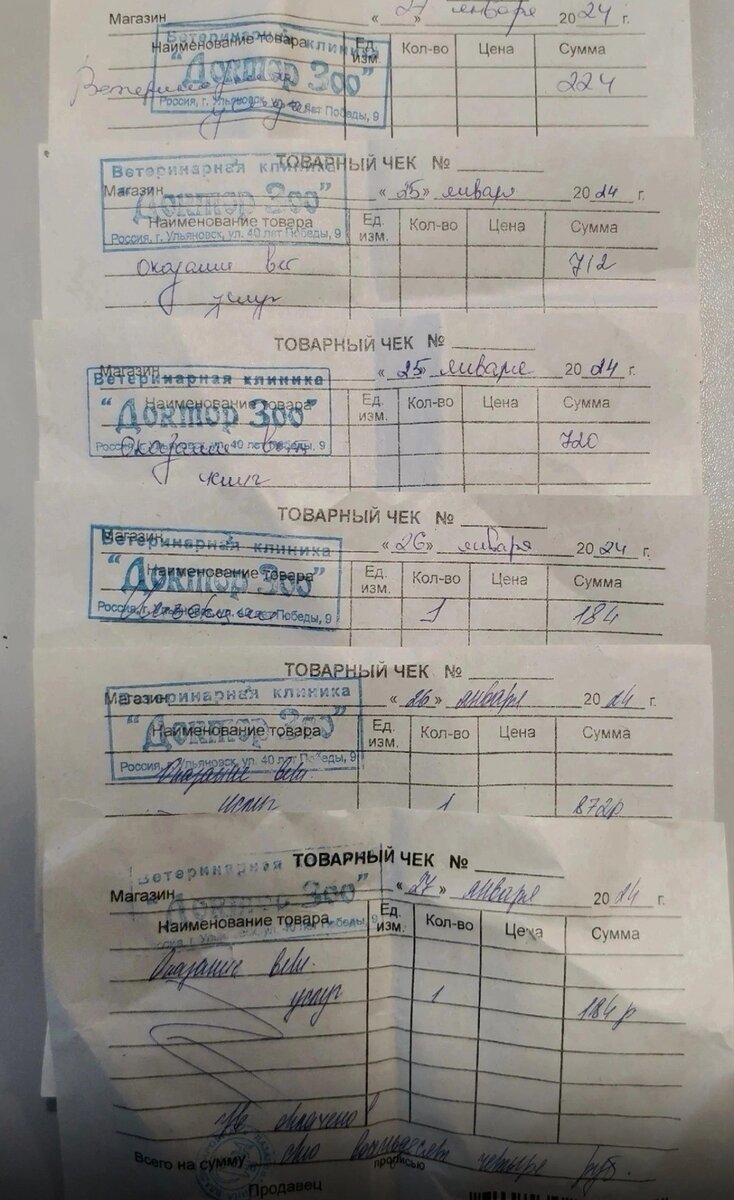 Магазин « 27 » января 2024 г.
Ветеринарная клиника
"Доктор Зоо"
Россия, г. Ульяновск, ул. 40 лет Победы, 9
Наименование товара Ед. изм. Кол-во Цена Сумма
224
ТОВАРНЫЙ ЧЕК №
Ветеринарная клиника
"Доктор Зоо"
Россия, г. Ульяновск, ул. 40 лет Победы, 9
Магазин « 25 » января 2024 г.
Наименование товара Ед. изм. Кол-во Цена Сумма
оказание вет 712
услуг
ТОВАРНЫЙ ЧЕК №
Магазин « 25 » января 2024 г.
Ветеринарная клиника
"Доктор Зоо"
Россия, г. Ульяновск, ул. 40 лет Победы, 9
Наименование товара Ед. изм. Кол-во Цена Сумма
Оказание 720
услуг
ТОВАРНЫЙ ЧЕК №
Магазин « 26 » января 2024 г.
Ветеринарная клиника
"Доктор Зоо"
Россия, г. Ульяновск, ул. 40 лет Победы, 9
Наименование товара Ед. изм. Кол-во Цена Сумма
1 184
ТОВАРНЫЙ ЧЕК №
Магазин « 26 » января 2024 г.
Ветеринарная клиника
"Доктор Зоо"
Россия, г. Ульяновск, ул. 40 лет Победы, 9
Наименование товара Ед. изм. Кол-во Цена Сумма
Оказание вет.
услуг 1 872р
ТОВАРНЫЙ ЧЕК №
Ветеринарная
"Доктор Зоо"
Магазин « 27 » января 2024 г.
Наименование товара Ед. изм. Кол-во Цена Сумма
Оказание вет.
услуг 1 184 р
Всего на сумму сто восемьдесят четыре руб.
прописью
Продавец